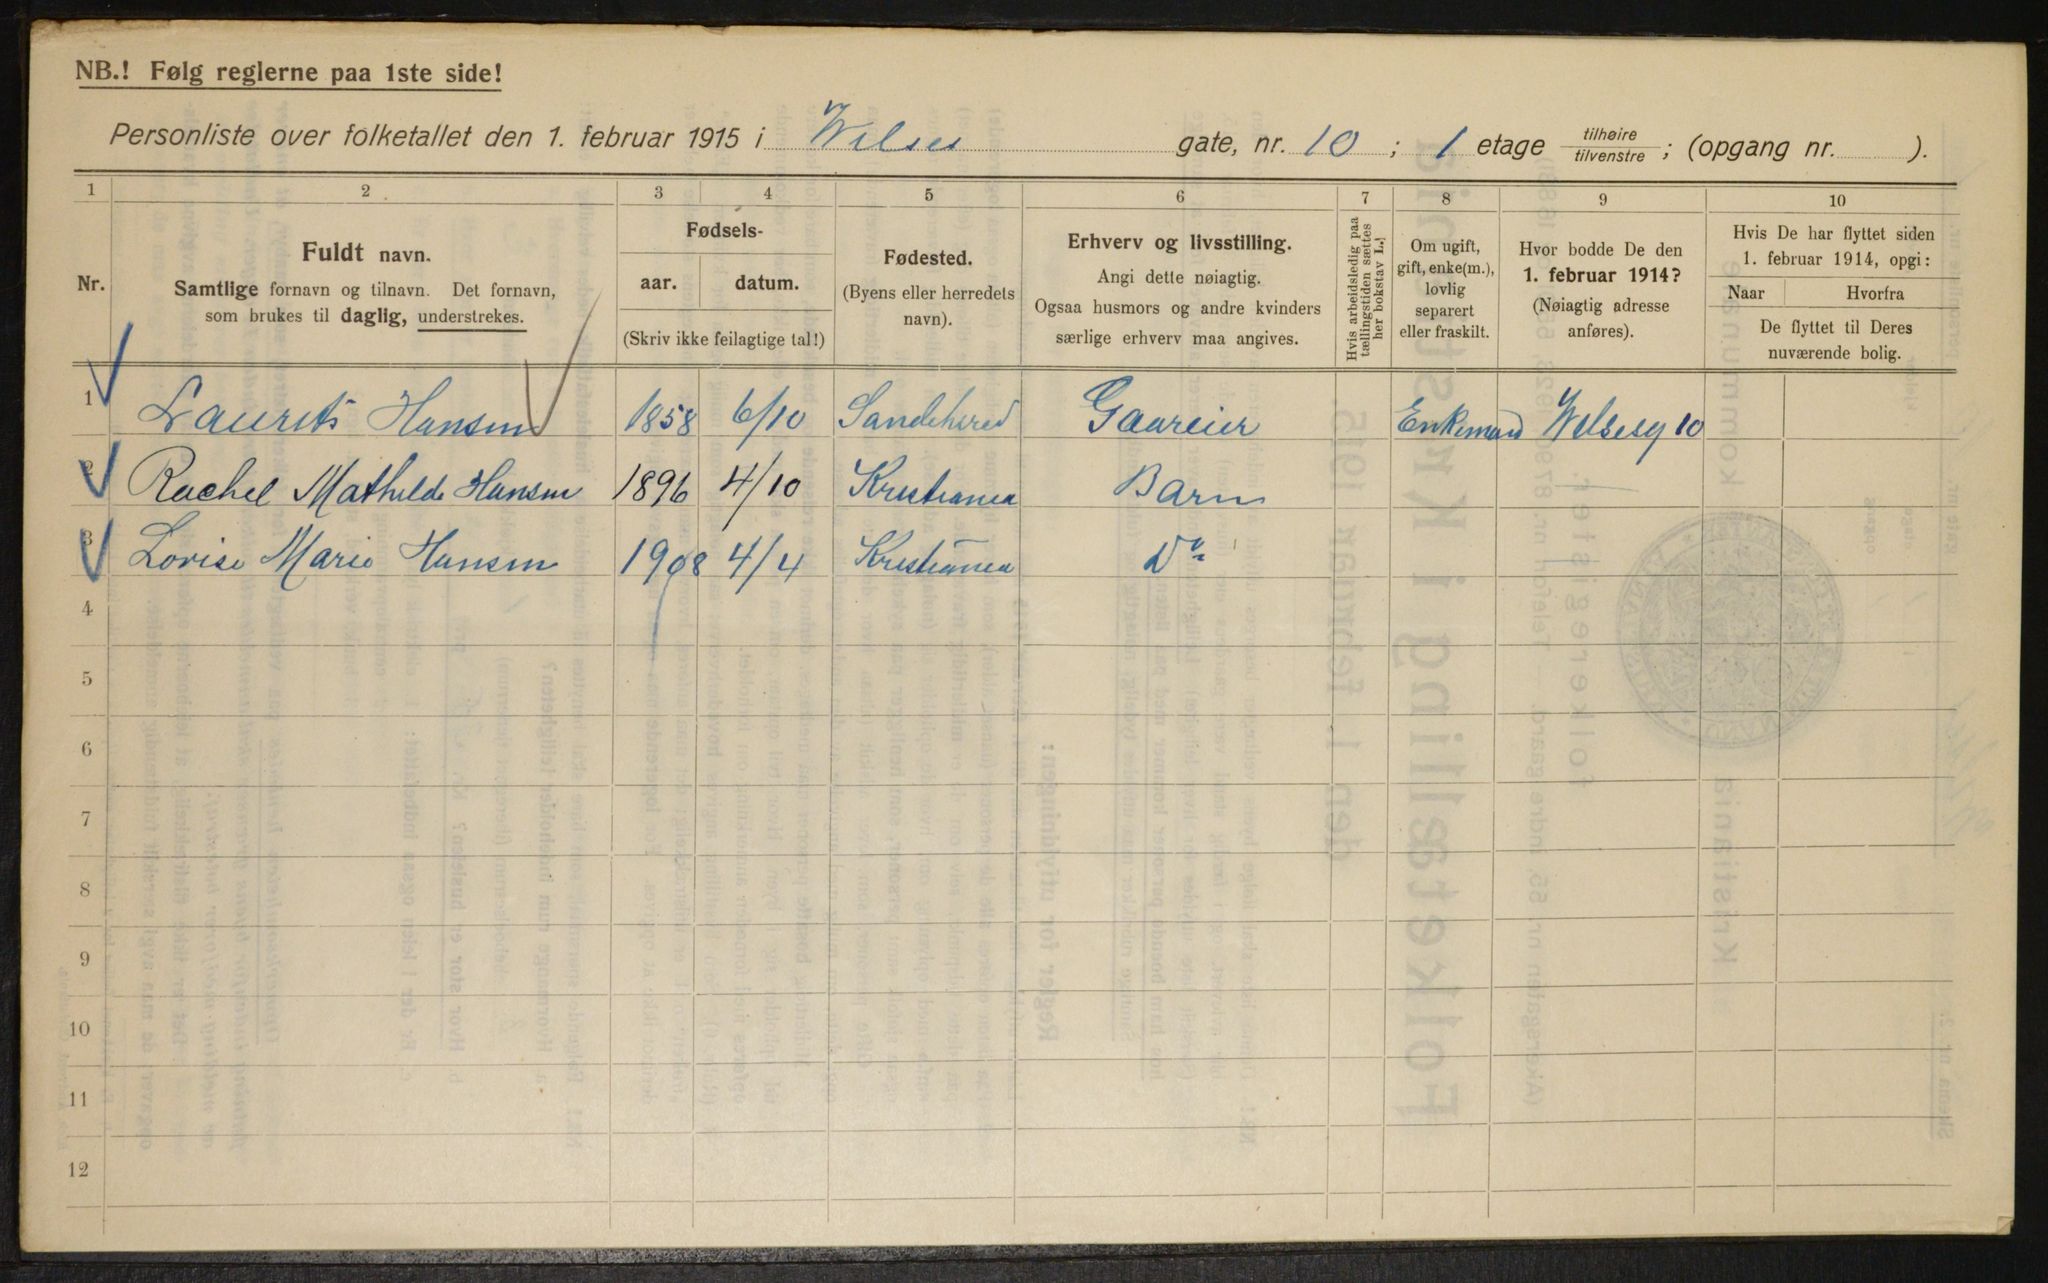 NB.! Følg reglerne paa 1ste side!
Personliste over folketallet den 1. februar 1915 i Welses gate, nr. 10 ; 1 etage tilhøire / tilvenstre ; (opgang nr. ).
1 2 3 4 5 6 7 8 9 10
Nr.
Fuldt navn.
Samtlige fornavn og tilnavn. Det fornavn,
som brukes til daglig, understrekes.
Fødsels-
aar. datum.
(Skriv ikke feilagtige tal!)
Fødested.
(Byens eller herredets
navn).
Erhverv og livsstilling.
Angi dette nøiagtig.
Ogsaa husmors og andre kvinders
særlige erhverv maa angives.
Hvis arbeidsledig paa
tællingstiden sættes
her bokstav L.)
Om ugift,
gift, enke(m.),
lovlig
separert
eller fraskilt.
Hvor bodde De den
1. februar 1914?
(Nøiagtig adresse
anføres).
Hvis De har flyttet siden
1. februar 1914, opgi:
Naar Hvorfra
De flyttet til Deres
nuværende bolig.
1 Laurits Hansen 1858 6/10 Sandehered Gaareier Enkemand Welsesg 10
2 Rachel Mathilde Hansen 1896 4/10 Kristiania Barn
3 Lovise Marie Hansen 1908 4/4 Kristiania Do
4
5
6
7
8
9
10
11
12